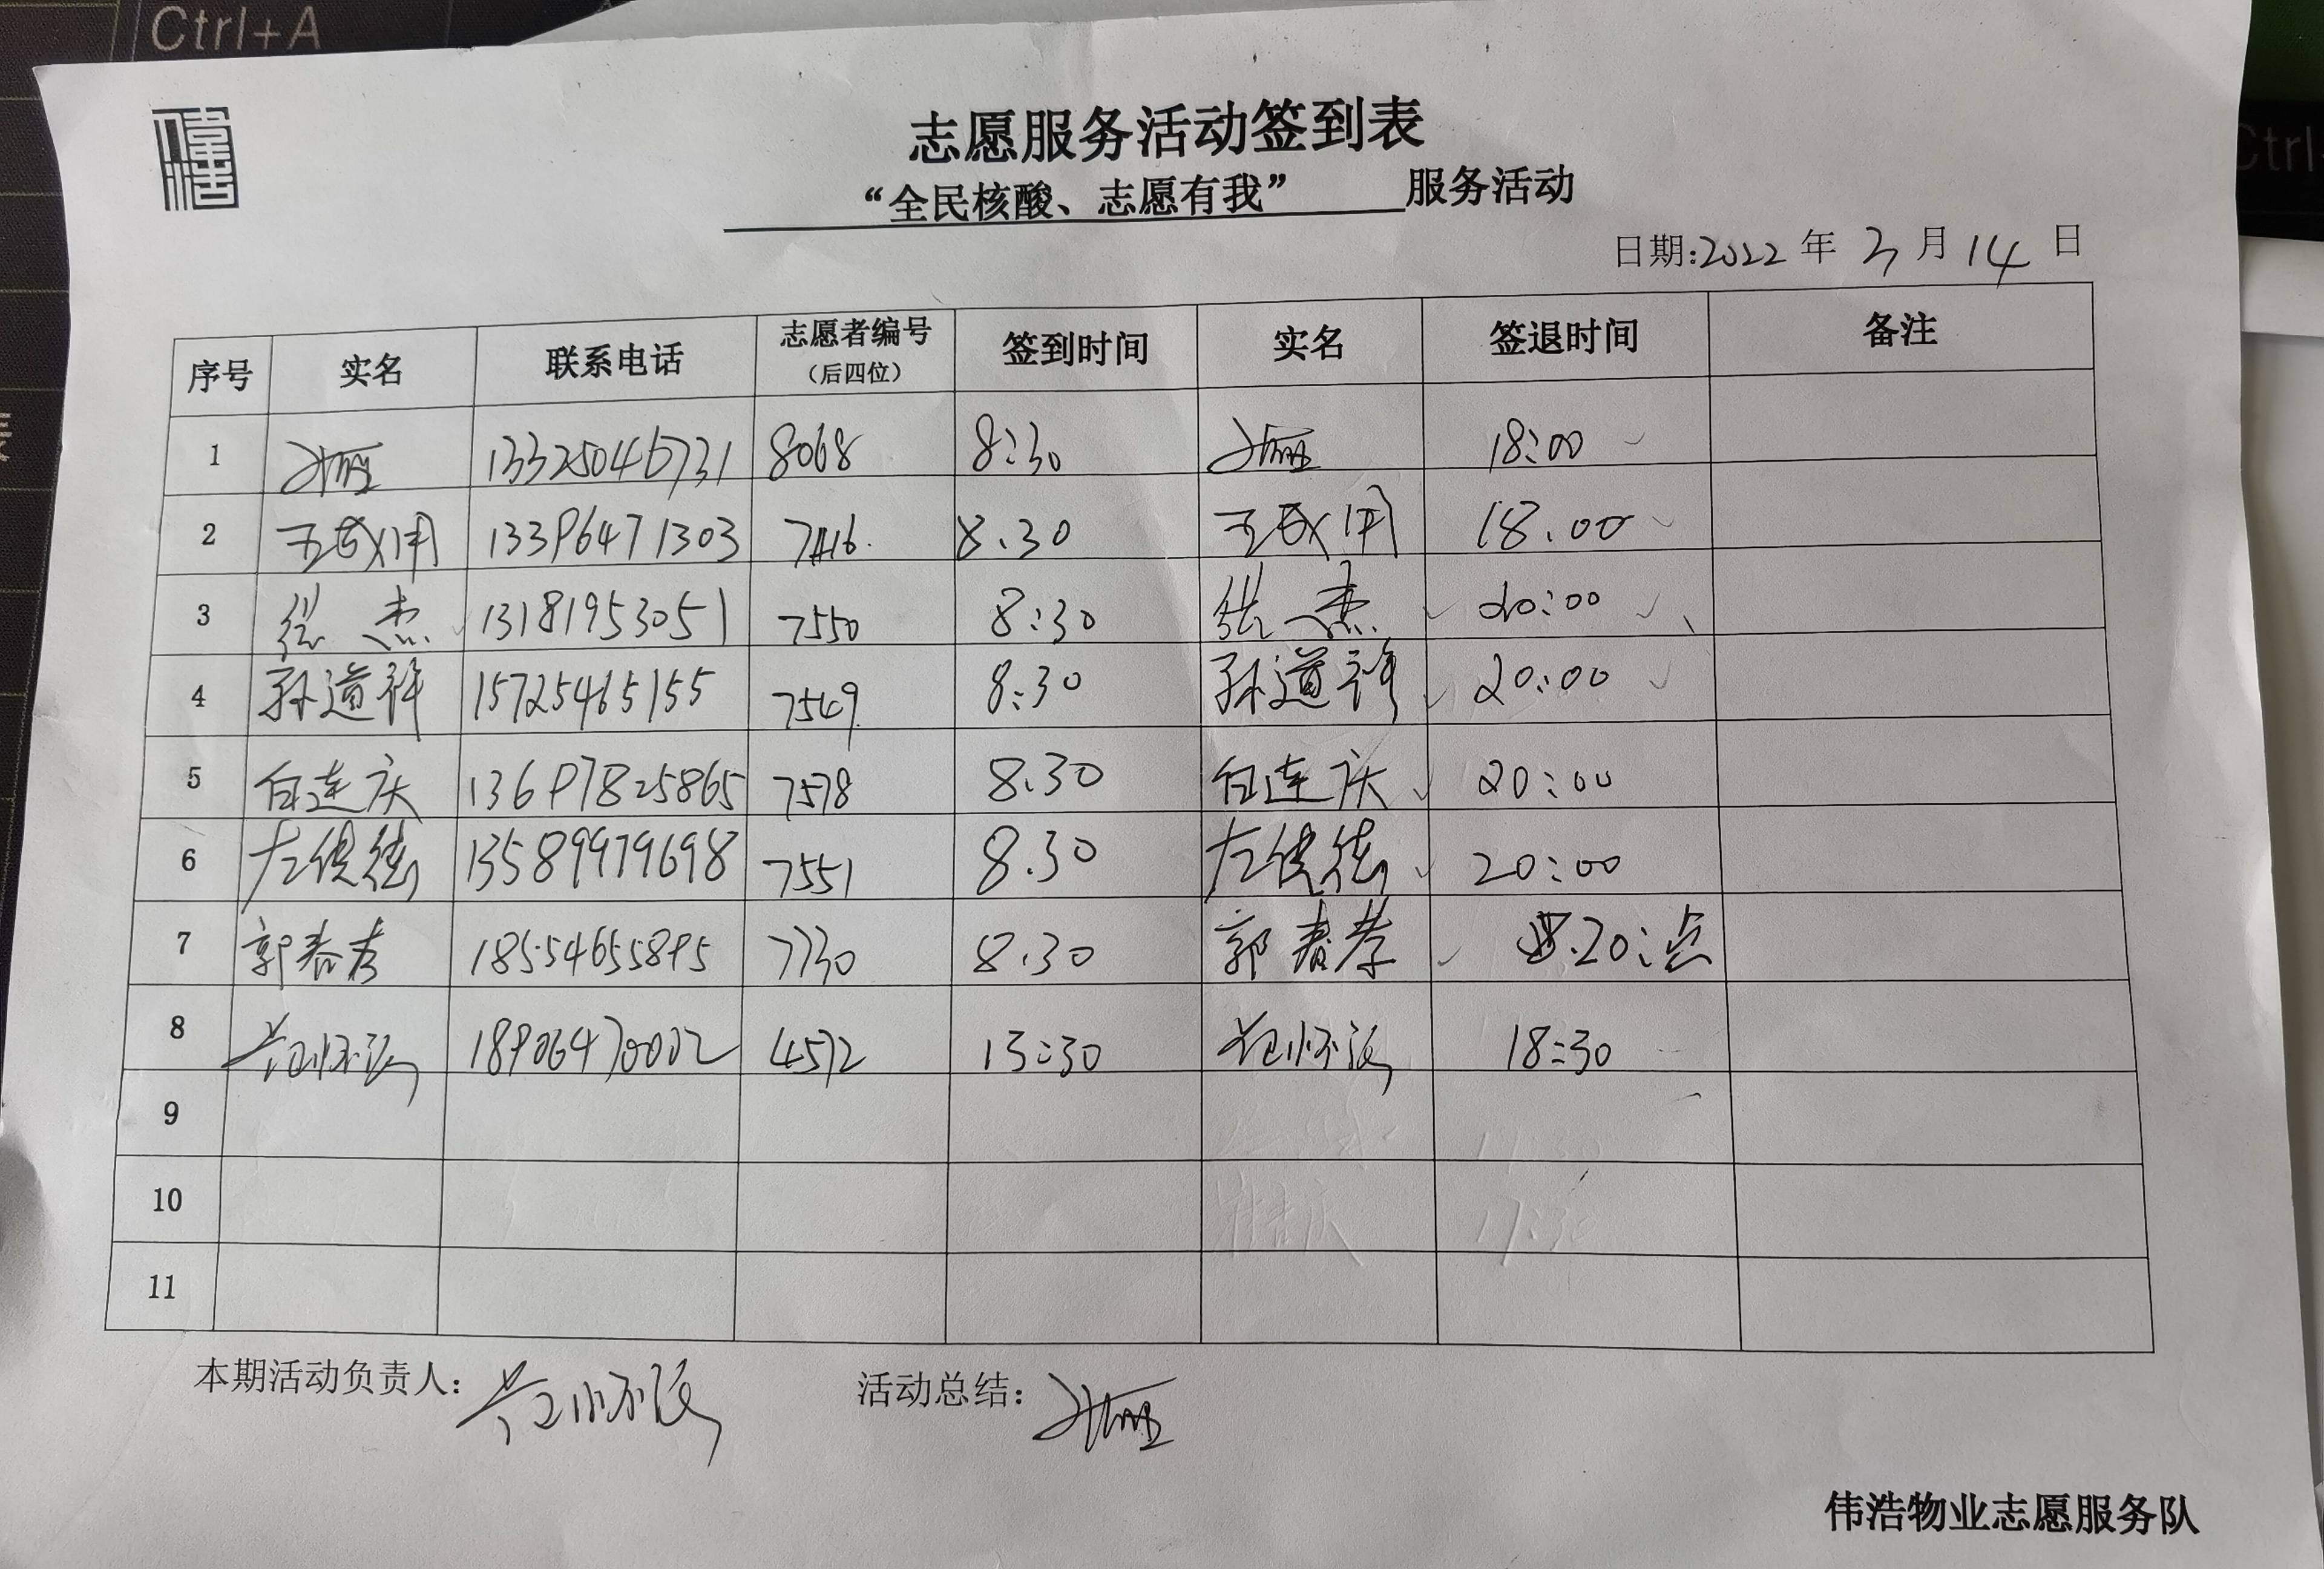 Ctrl+A
Ctrl
伟浩
志愿服务活动签到表
“全民核酸、志愿有我” 服务活动
日期:2022 年 3 月 14 日
序号 实名 联系电话 志愿者编号(后四位) 签到时间 实名 签退时间 备注
1 13325045731 8068 8:30 18:00
2 13396471303 7416 8.30 18.00
3 张杰 13181953051 7550 8:30 张杰 20:00
4 孙道祥 15725465155 7549 8:30 孙道祥 20:00
5 白连庆 13697825865 7578 8.30 白连庆 20:00
6 左俊德 13589979698 7551 8.30 左俊德 20:00
7 郭春孝 18554655895 7730 8.30 郭春孝 20:点
8 18906470002 4572 13:30 18:30
9
10
11
本期活动负责人:
活动总结:
伟浩物业志愿服务队